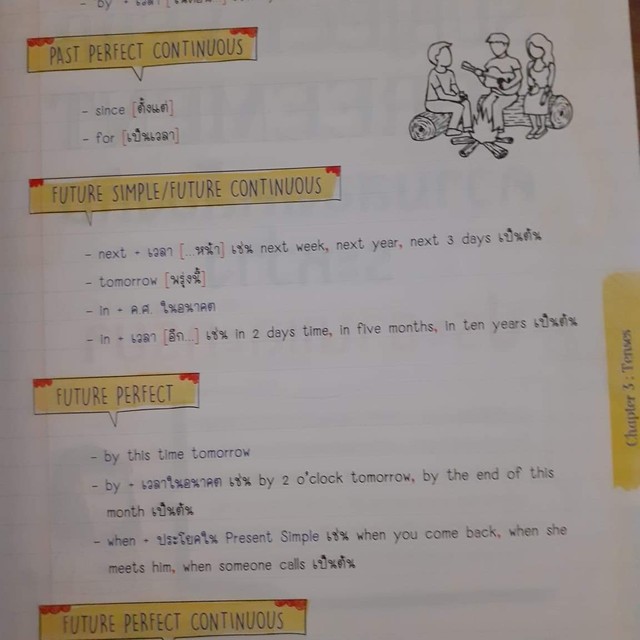 - by + เวลา
PAST PERFECT CONTINUOUS
- since [ตั้งแต่]
- for [เป็นเวลา]
FUTURE SIMPLE/FUTURE CONTINUOUS
- next + เวลา [...หน้า] เช่น next week, next year, next 3 days เป็นต้น
- tomorrow [พรุ่งนี้]
- in + ค.ศ. ในอนาคต
- in + เวลา [อีก...] เช่น in 2 days time, in five months, in ten years เป็นต้น
FUTURE PERFECT
- by this time tomorrow
- by + เวลาในอนาคต เช่น by 2 o'clock tomorrow, by the end of this
month เป็นต้น
- when + ประโยคใน Present Simple เช่น when you come back, when she
meets him, when someone calls เป็นต้น
FUTURE PERFECT CONTINUOUS
Chapter 3 : Tenses